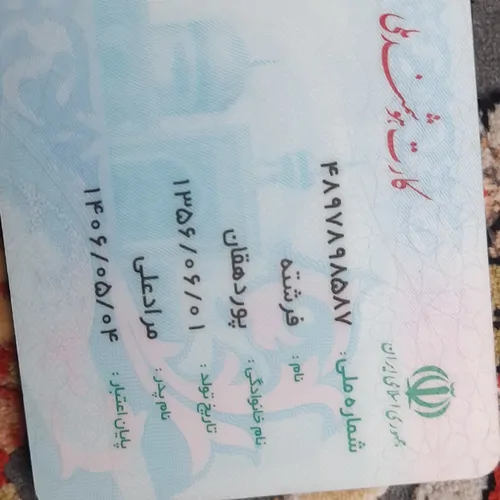 کارت هوشمند ملی
جمهوری اسلامی ایران
شماره ملی: ۴۸۹۷۸۹۸۵۸۷
نام: فرشته
نام خانوادگی: پوردهقان
تاریخ تولد: ۱۳۵۶/۰۶/۰۱
نام پدر: مرادعلی
پایان اعتبار: ۱۴۰۶/۰۵/۰۴